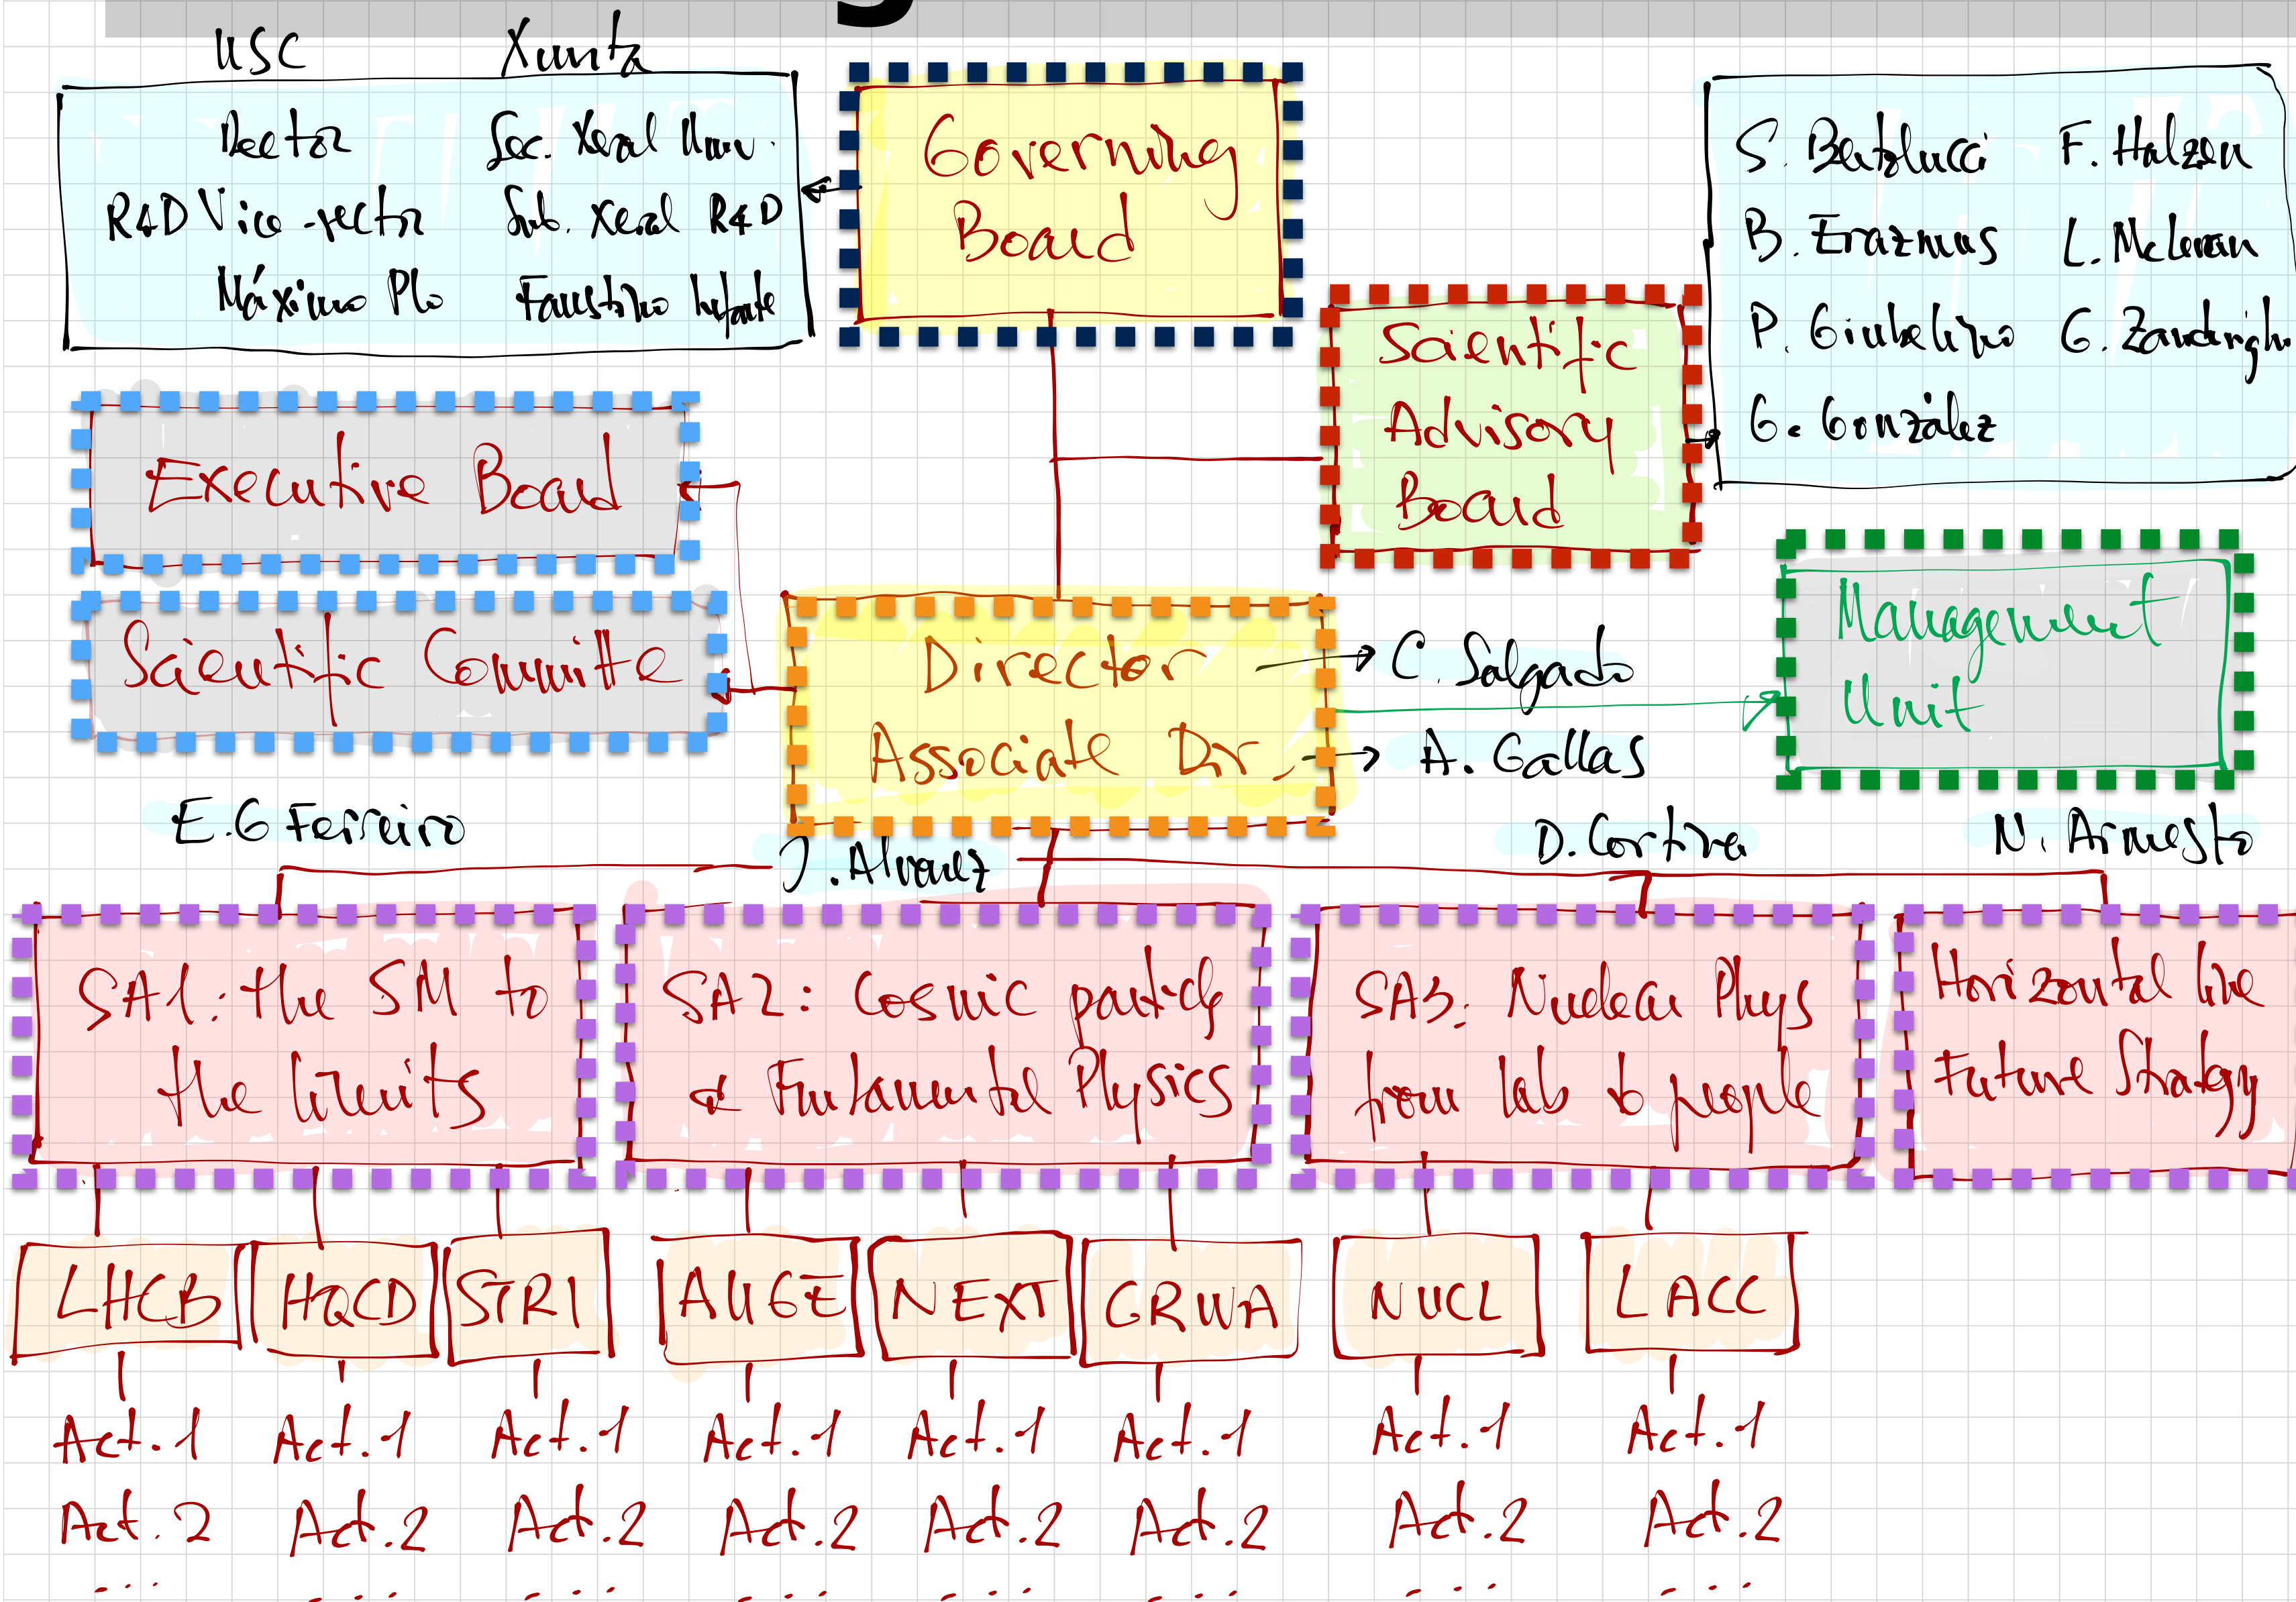 USC Xunta
Rector Sec. Xeral Univ.
R&D Vice-rector Sub. Xeral R&D
Máximo Plo Faustino Infante
Governing
Board
S. Bertolucci F. Halzen
B. Erazmus L. McLerran
P. Giubellino G. Zanderighi
G. González
Scientific
Advisory
Board
Executive Board
Scientific Committe
Director → C. Salgado
Associate Dir. → A. Gallas
Management
Unit
E.G Ferreiro
J. Alvarez
D. Cortina
N. Armesto
SA1: the SM to
the limits
SA2: Cosmic particle
& Fundamental Physics
SA3: Nuclear Phys
from lab to people
Horizontal line
Future Strategy
LHCB HQCD STRI AUGE NEXT GRWA NUCL LACC
Act.1 Act.1 Act.1 Act.1 Act.1 Act.1 Act.1 Act.1
Act.2 Act.2 Act.2 Act.2 Act.2 Act.2 Act.2 Act.2